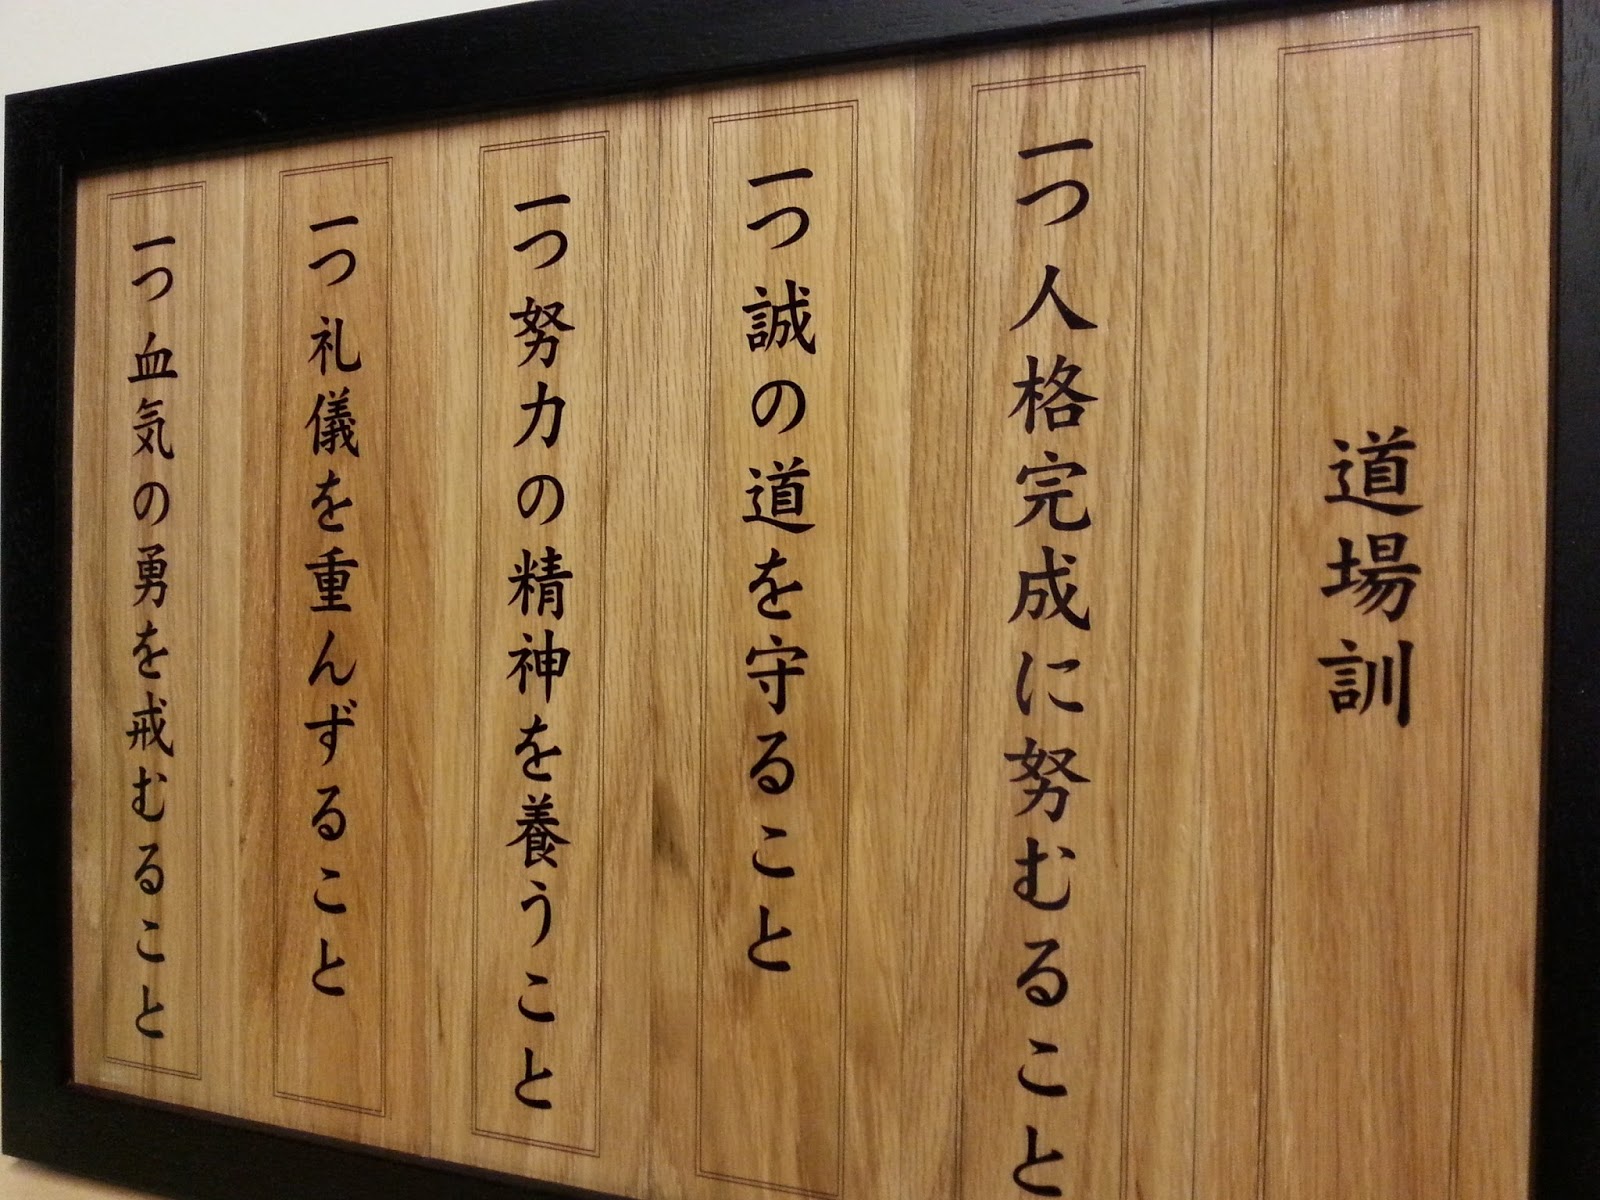 道場訓
一つ人格完成に努むること
一つ誠の道を守ること
一つ努力の精神を養うこと
一つ礼儀を重んずること
一つ血気の勇を戒むること